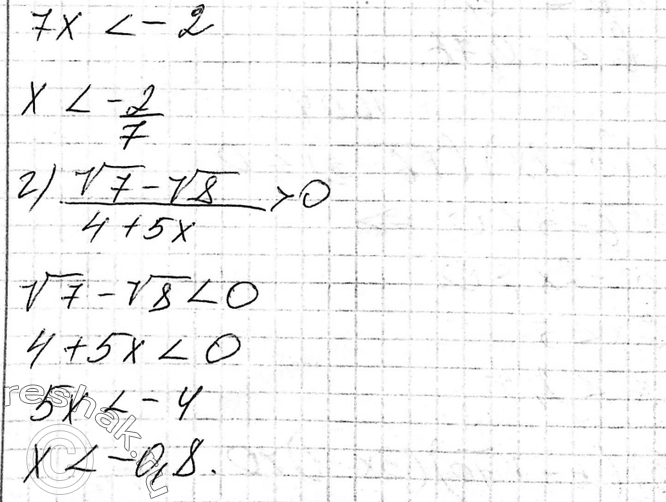 7x < -2
x < -2/7
г) (√7 - √8)/(4 + 5x) > 0
√7 - √8 < 0
4 + 5x < 0
5x < -4
x < -0,8.
reshak.ru